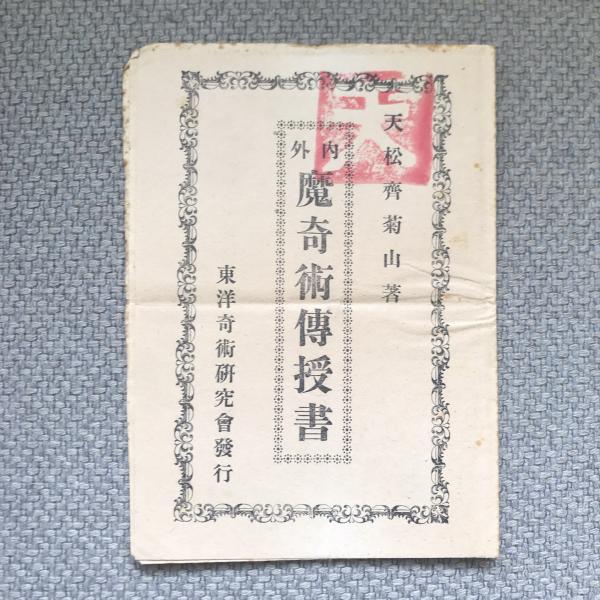 天松齊菊山著
内外
魔奇術傳授書
東洋奇術研究會發行